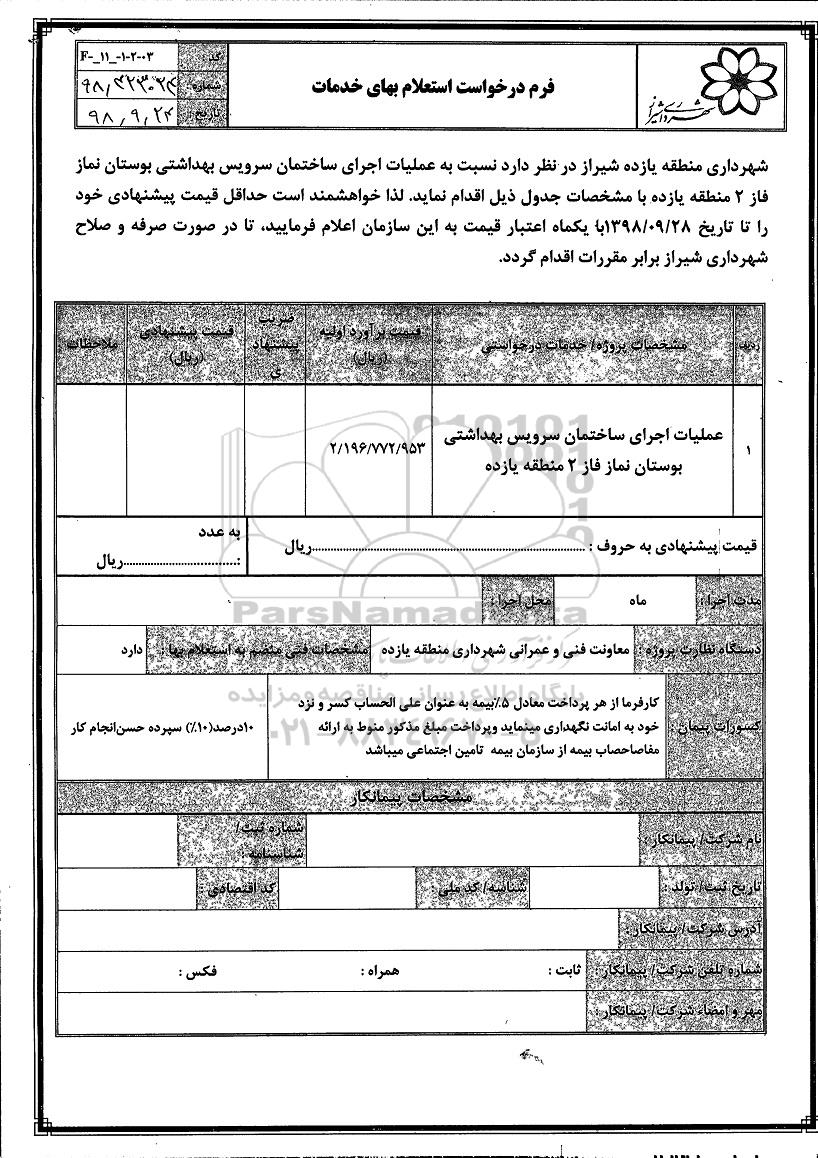 کد: F-_11_-۱-۲-۰۳
شماره: ۹۸/۴۲۳۰۲۴
تاریخ: ۹۸/۹/۲۴
فرم درخواست استعلام بهای خدمات
شهرداری شیراز
شهرداری منطقه یازده شیراز در نظر دارد نسبت به عملیات اجرای ساختمان سرویس بهداشتی بوستان نماز
فاز ۲ منطقه یازده با مشخصات جدول ذیل اقدام نماید. لذا خواهشمند است حداقل قیمت پیشنهادی خود
را تا تاریخ ۱۳۹۸/۰۹/۲۸با یکماه اعتبار قیمت به این سازمان اعلام فرمایید، تا در صورت صرفه و صلاح
شهرداری شیراز برابر مقررات اقدام گردد.
ردیف مشخصات پروژه/ خدمات درخواستی قیمت برآورد اولیه (ریال) ضریب پیشنهادی قیمت پیشنهادی (ریال) ملاحظات
۱ عملیات اجرای ساختمان سرویس بهداشتی
بوستان نماز فاز ۲ منطقه یازده
۲/۱۹۶/۷۷۲/۹۵۳
قیمت پیشنهادی به حروف : ..................ریال
به عدد
:..................ریال
مدت اجرا : ماه محل اجرا :
دستگاه نظارت پروژه : معاونت فنی و عمرانی شهرداری منطقه یازده مشخصات فنی منضم به استعلام بها : دارد
کسورات پیمان :
کارفرما از هر پرداخت معادل ۵٪بیمه به عنوان علی الحساب کسر و نزد
خود به امانت نگهداری مینماید وپرداخت مبلغ مذکور منوط به ارائه
مفاصاحصاب بیمه از سازمان بیمه تامین اجتماعی میباشد
۱۰درصد(۱۰٪) سپرده حسن‌انجام کار
مشخصات پیمانکار
نام شرکت/ پیمانکار : شماره ثبت/
شناسنامه :
تاریخ ثبت/ تولد : شناسه/ کد ملی : کد اقتصادی :
آدرس شرکت/ پیمانکار:
شماره تلفن شرکت/ پیمانکار : ثابت : همراه : فکس :
مهر و امضاء شرکت/ پیمانکار :
ParsNamadData
پایگاه اطلاع رسانی مناقصه و مزایده